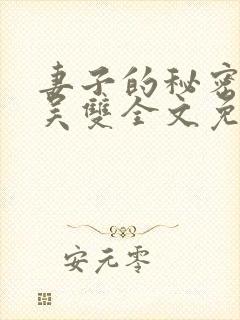 妻子的秘密
吴雙全文免
安元零